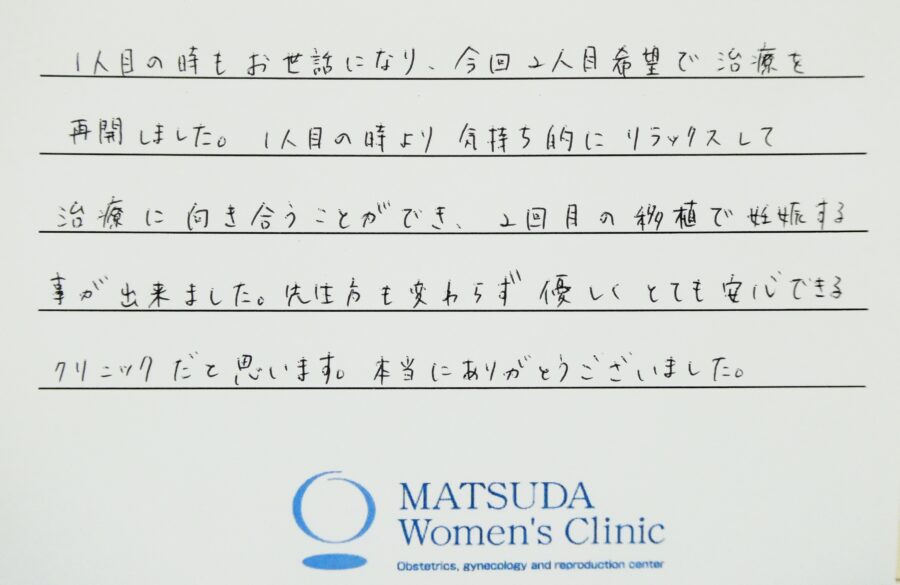 1人目の時もお世話になり、今回2人目希望で治療を
再開しました。1人目の時より気持ち的にリラックスして
治療に向き合うことができ、2回目の移植で妊娠する
事が出来ました。先生方も変わらず優しくとても安心できる
クリニックだと思います。本当にありがとうございました。
MATSUDA
Women's Clinic
Obstetrics, gynecology and reproduction center